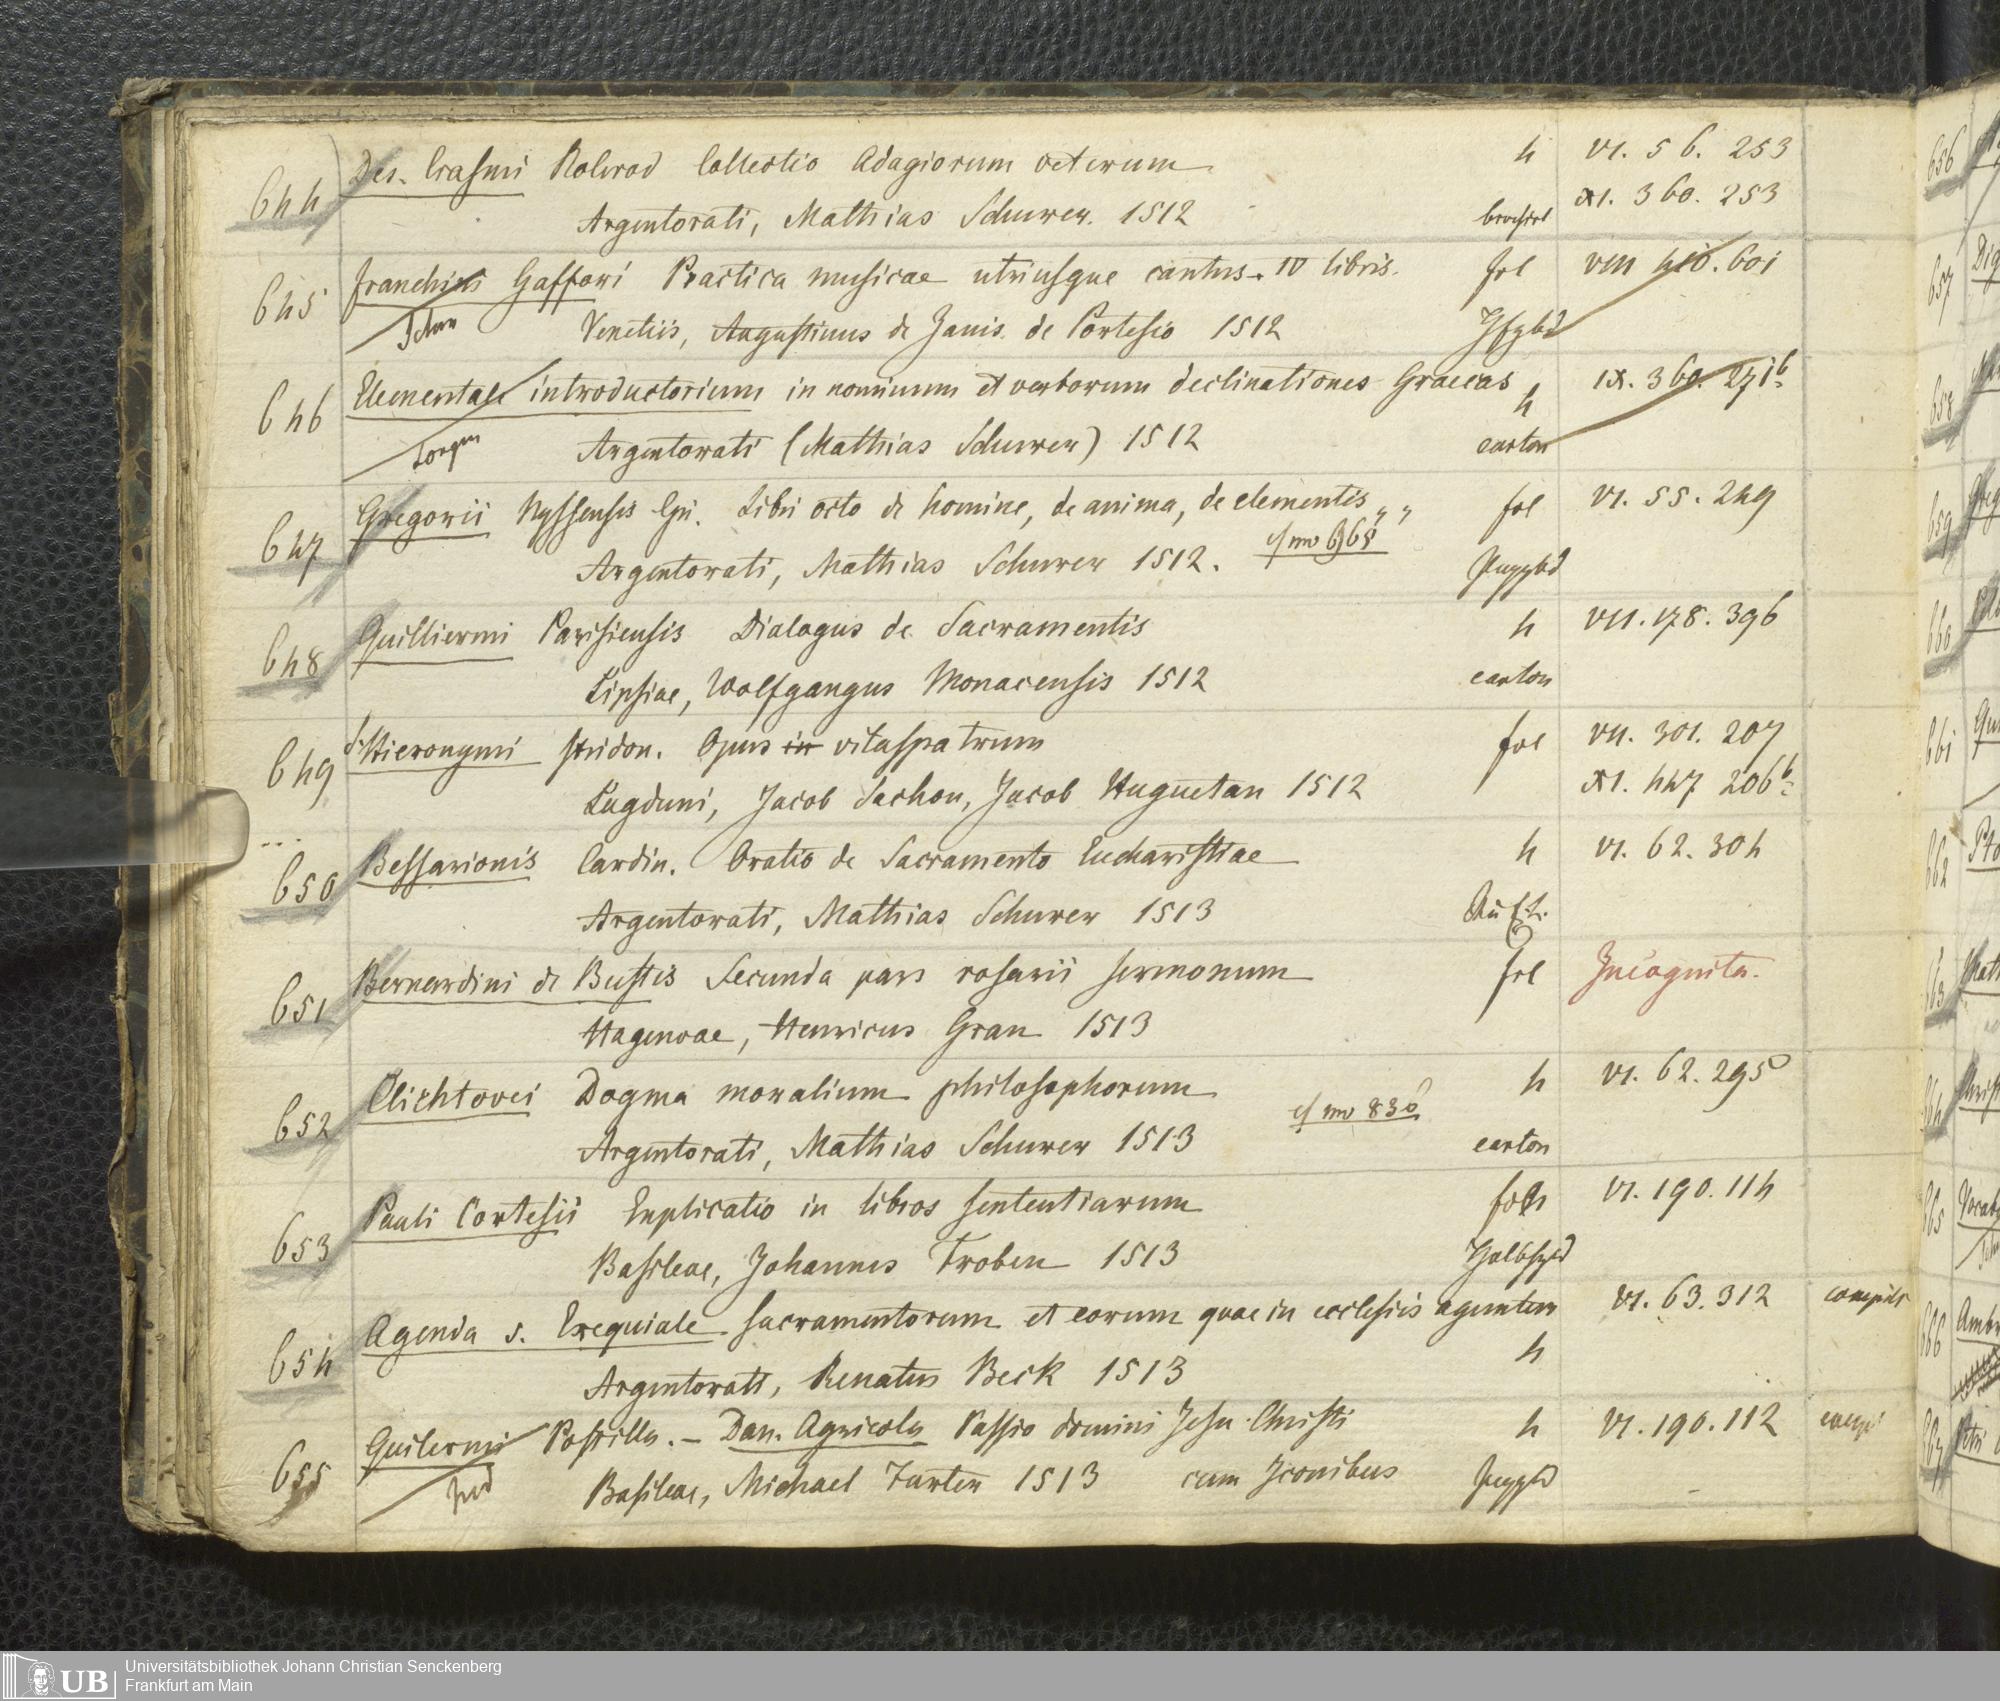 644 Des. Erasmi Roterod Collectio Adagiorum veterum h VI. 56. 253
Argentorati, Mathias Schurer. 1512 brochirt XI. 360. 253
645 Franchini Gaffori Practica musicae utriusque cantus. IV libris. fol VIII 410. 601
Venetiis, Augustinus de Zanis de Portesio 1512 Hfzbd
646 Elementale introductorium in nominum et verborum declinationes Graecas h IX. 360. 271b
Argentorati (Mathias Schurer) 1512 carton
647 Gregorii Nyssensis Epi. Libri octo de homine, de anima, de elementis „ „ fol VI. 55. 249
Argentorati, Mathias Schurer 1512. cf no 668 Pappbd
648 Guilliermi Parisiensis Dialogus de Sacramentis h VII. 178. 396
Lipsiae, Wolfgangus Monacensis 1512 carton
649 S. Hieronymi Stridon. Opus in vitaspatrum fol VII. 301. 207
Lugduni, Jacob Sachon, Jacob Huguetan 1512 XI. 447 206b
650 Bessarionis Cardin. Oratio de Sacramento Eucharistiae h VI. 62. 304
Argentorati, Mathias Schurer 1513
651 Bernardini de Bustis Secunda pars rosarii sermonum fol Incognita.
Hagenoae, Henricus Gran 1513
652 Clichtovei Dogma moralium philosophorum h VI. 62. 295
Argentorati, Mathias Schurer 1513 cf no 830 carton
653 Pauli Cortesii Explicatio in libros sententiarum fol VI. 190. 114
Basileae, Johannes Froben 1513
654 Agenda s. Exequiale sacramentorum et eorum quae in ecclesiis aguntur VI. 63. 312
Argentorati, Renatus Beck 1513 h
655 Guilermi Postilla. – Dan. Agricola Passio domini Jesu Christi h VI. 190. 112
Basileae, Michael Furter 1513 cum Iconibus Pappbd
656
657
658
659
660
661
662
UB Universitätsbibliothek Johann Christian Senckenberg
Frankfurt am Main